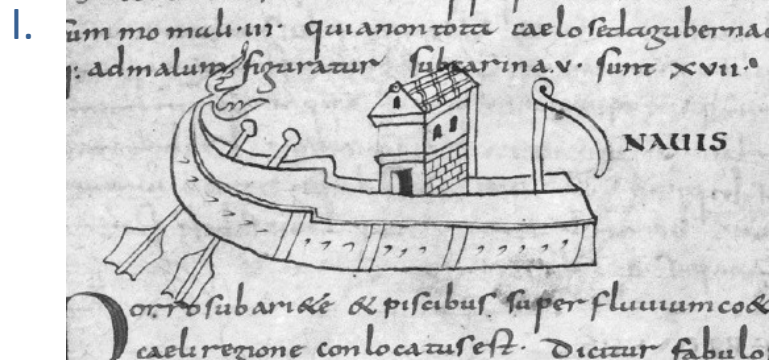 I.
um mo mali·III· qui a non tota caelo sed a guberna
ad malum figuratur sub carina·v· sunt xvii·
NAUIS
orro sub ariete & piscibus super fluuium co&
caeli regione conlocatus est· Dicitur fabulo